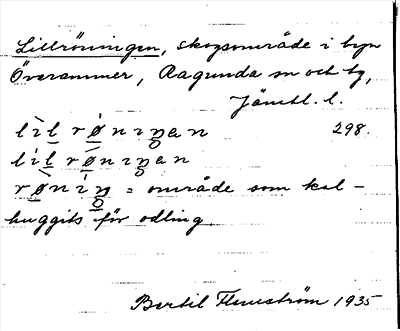 Lillröningen, skogsområde i byn
Överammer, Ragunda sn och tg,
Jämtl. l.
lìl rø̀niŋan 298.
lìl rø̀niŋan
rø̀niŋ = område som kal-
huggits för odling.
Bertil Flemström 1935